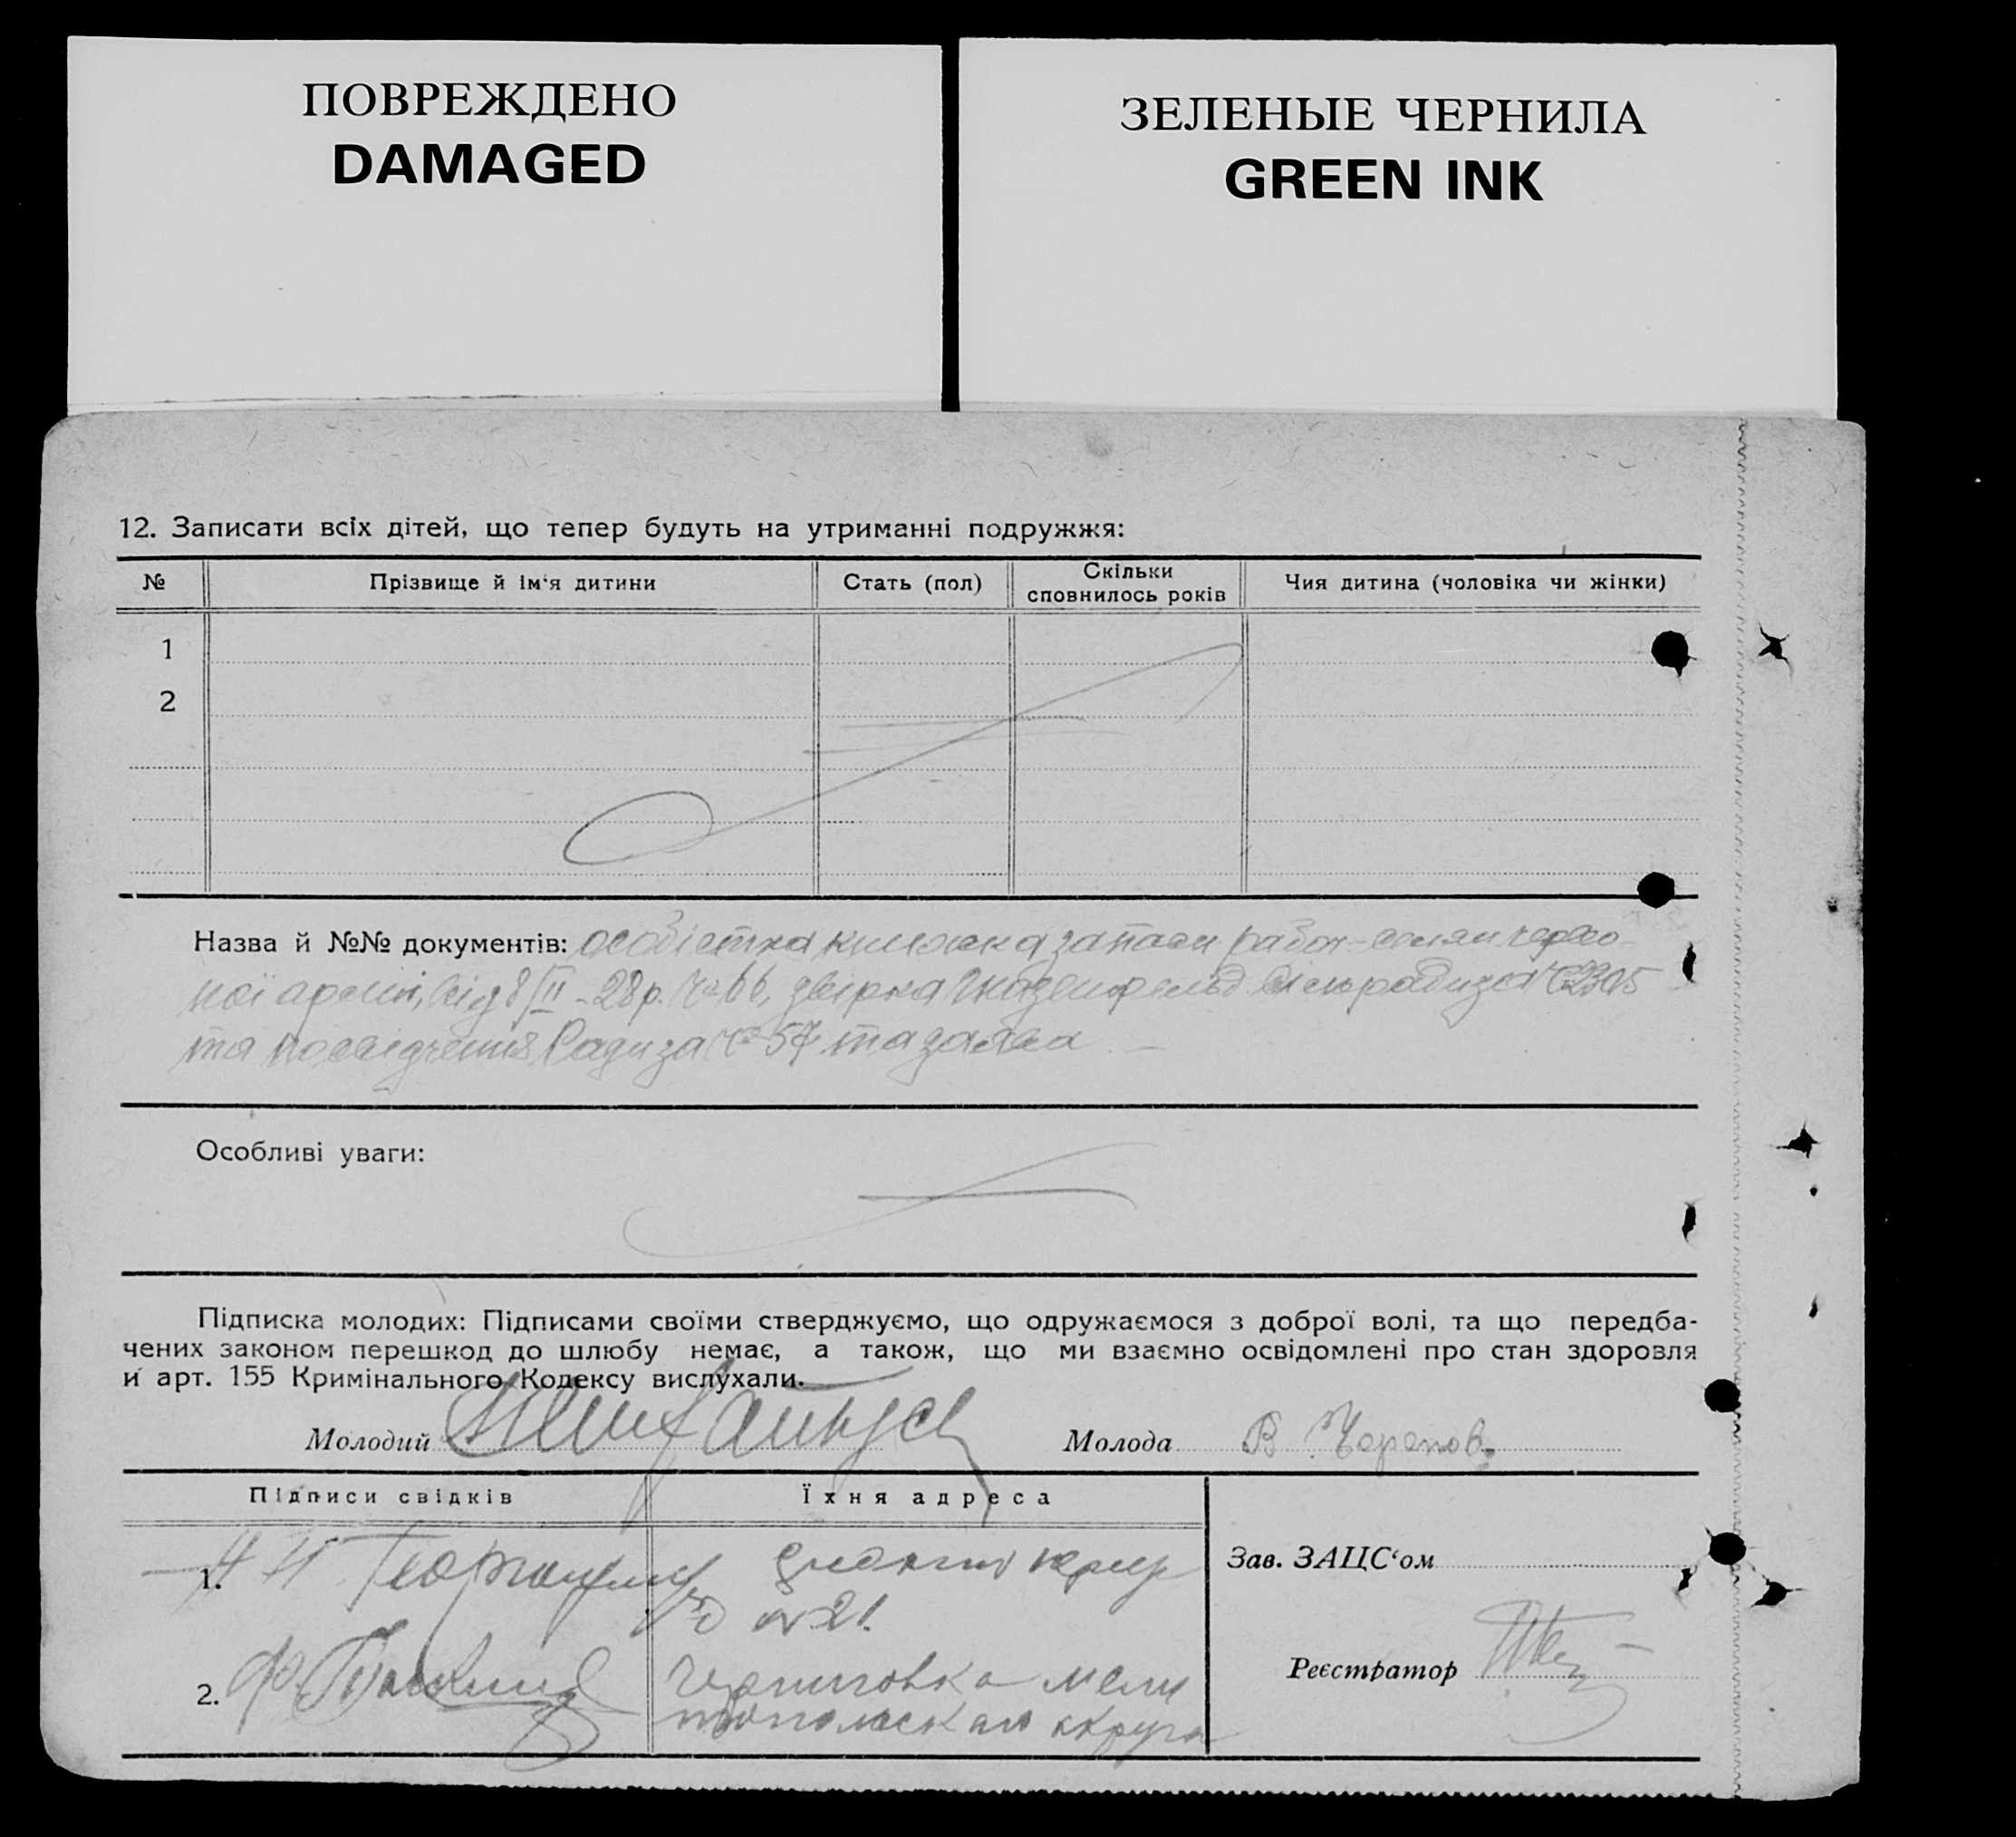 ПОВРЕЖДЕНО
DAMAGED
ЗЕЛЕНЫЕ ЧЕРНИЛА
GREEN INK
12. Записати всіх дітей, що тепер будуть на утриманні подружжя:
№ Прізвище й ім'я дитини Стать (пол) Скільки сповнилось років Чия дитина (чоловіка чи жінки)
1
2
Назва й №№ документів: особістка книжка запаси робоч-селян черво-
ної армії, від 8/II-28р. № 66, звірка сільради за № 2305
та посвідчення Ради за № 57 та заява
Особливі уваги:
Підписка молодих: Підписами своїми стверджуємо, що одружаємося з доброї волі, та що передба-
чених законом перешкод до шлюбу немає, а також, що ми взаємно освідомлені про стан здоровля
и арт. 155 Кримінального Кодексу вислухали.
Молодий Молода В
Підписи свідків Їхня адреса
1.
№ 21.
Зав. ЗАЦС'ом
2. Ф. Черниговка Мели
топольская округа
Реєстратор